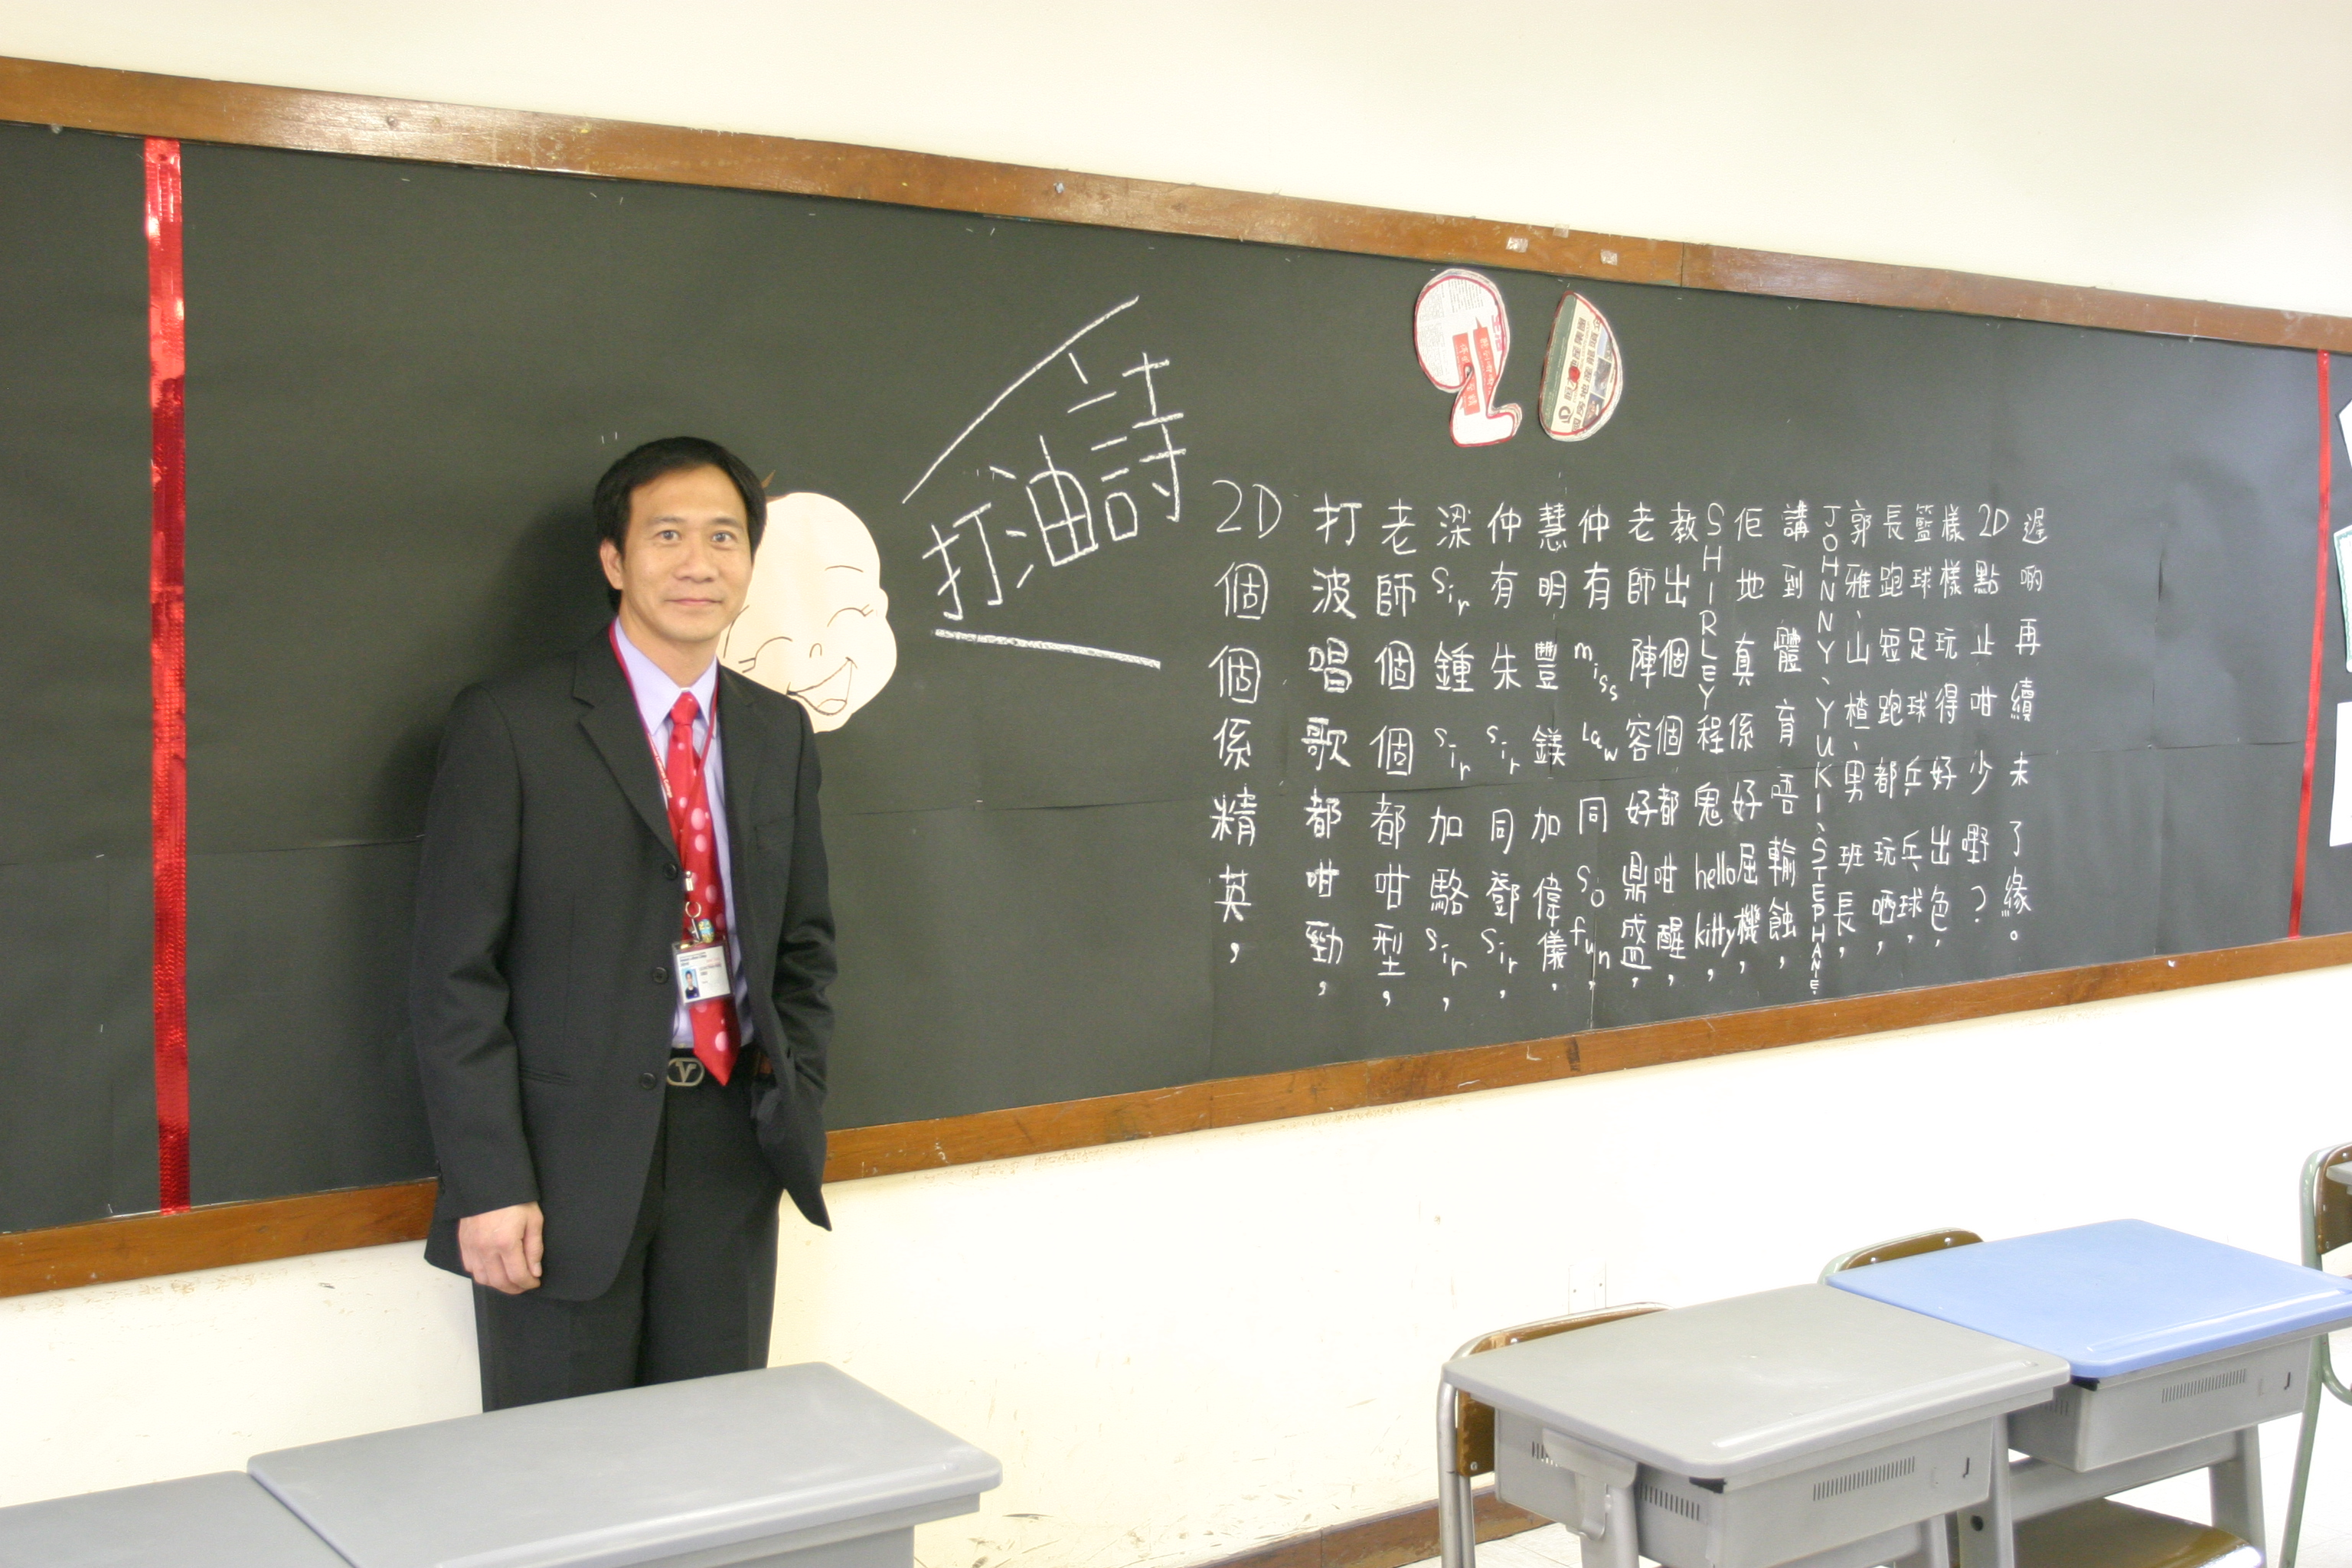 打油詩
2D
2D個個係精英,
打波唱歌都咁勁,
老師個個都咁型,
深sir鍾sir加駱sir,
仲有朱sir同鄧sir,
慧明豐鎂加偉儀,
仲有miss Law同so fun,
老師陣容好鼎盛,
教出個個都咁醒,
SHIRLEY程鬼hello kitty,
佢地真係好屈機,
講到體育唔輸蝕,
JOHNNY、YUKI、STEPHANIE.
郭雅、山楂、男班長,
長跑短跑都玩晒,
籃球足球乒乓球,
樣樣玩得好出色,
2D點止咁少嘢?
遲啲再續未了緣。